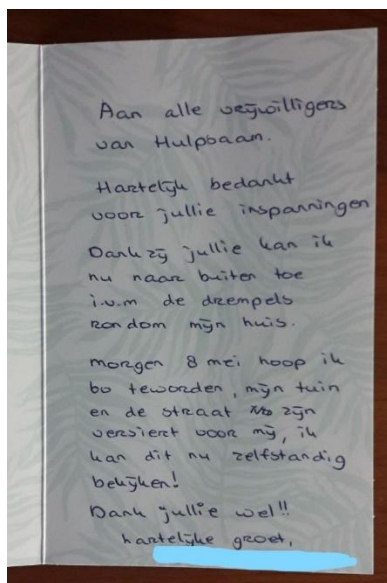 Aan alle vrijwilligers
van Hulpbaam.
Hartelijk bedankt
voor jullie inspanningen
Dankzij jullie kan ik
nu naar buiten toe
i.v.m de drempels
rondom mijn huis.
morgen 8 mei hoop ik
80 teworden, mijn tuin
en de straat zijn
versiert voor mij, ik
kan dit nu zelfstandig
bekijken!
Dank jullie wel!!
hartelijke groet,